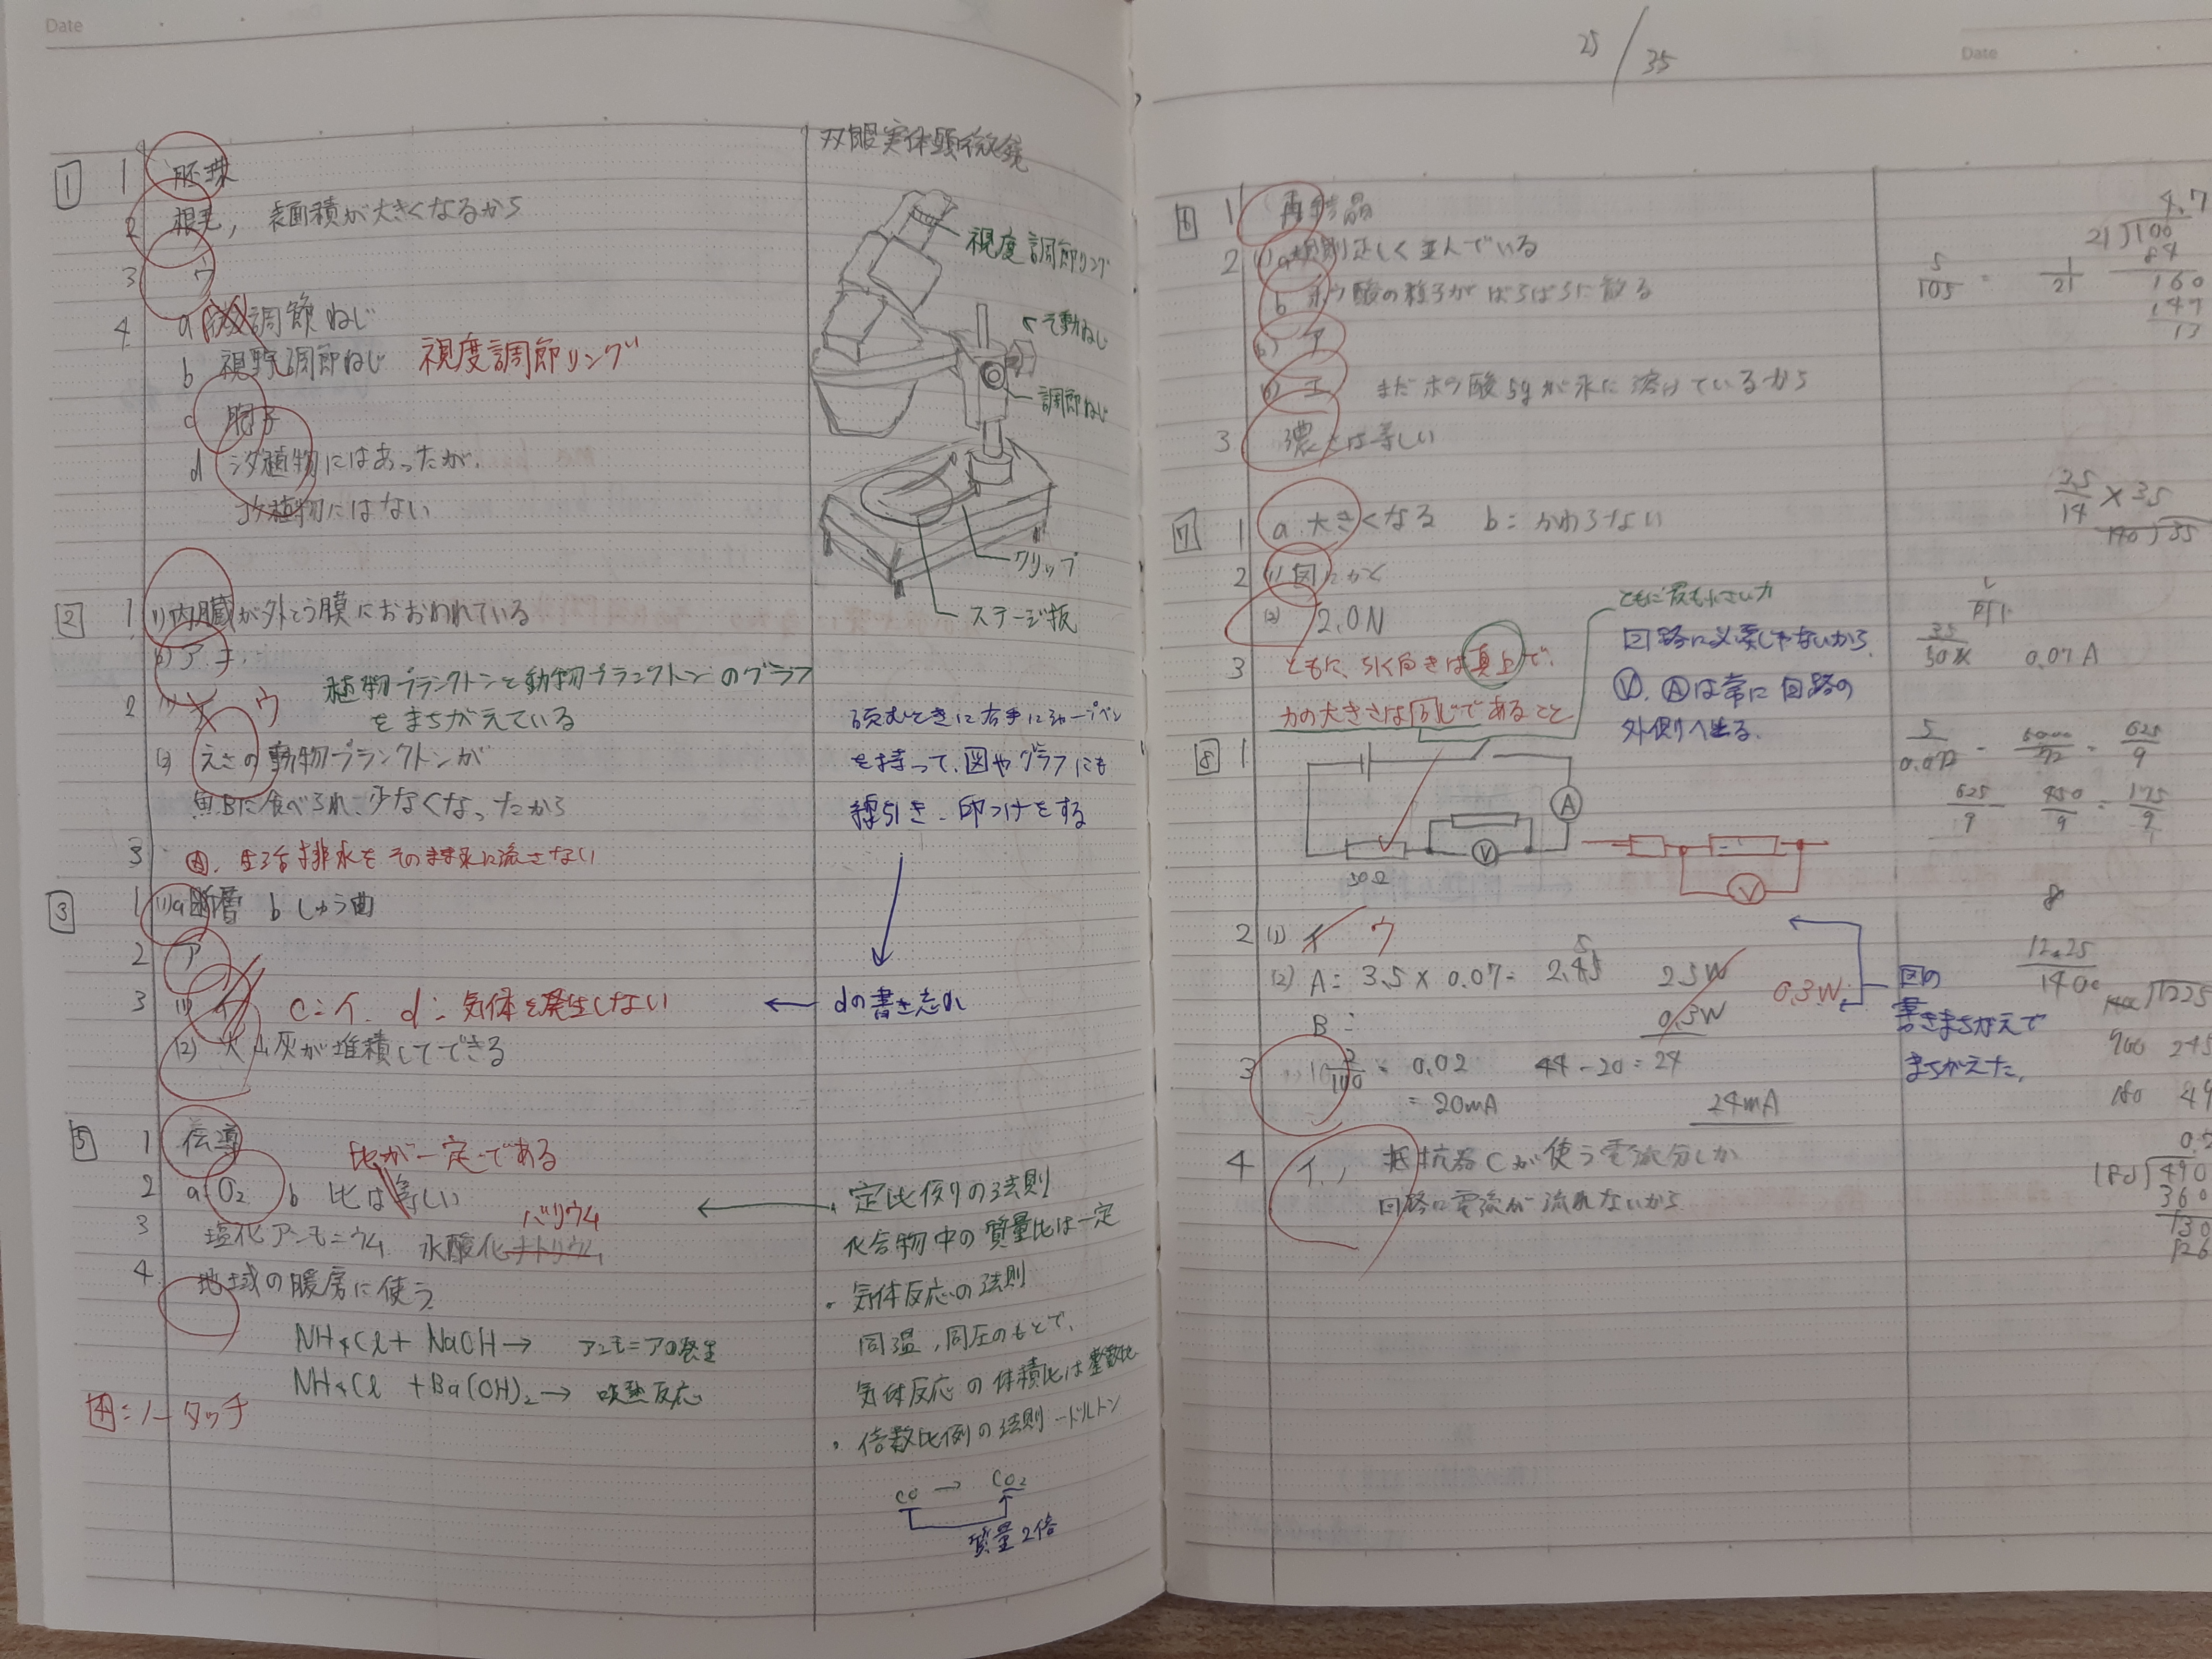 Date
1
1 胚珠
2 根毛, 表面積が大きくなるから
3 ウ
4 a 調節ねじ
b 視野調節ねじ 視度調節リング
c 胞子
d シダ植物にはあったが,
コケ植物にはない
2
1 (1) 内臓が外とう膜におおわれている
(2) ア, オ
2 (1) イ ウ
植物プランクトンと動物プランクトンのグラフ
をまちがえている
(2) えさの動物プランクトンが
魚Bに食べられ、少なくなったから
3 生活排水をそのまま水に流さない
3
1 (1) a 断層 b しゅう曲
2 ア
3 (1) イ c:イ, d: 気体を発生しない
(2) 火山灰が堆積してできる
5
1 伝導
比が一定である
2 a O2 b 比は等しい
バリウム
3 塩化アンモニウム 水酸化ナトリウム
4 地域の暖房に使う
NH4Cl + NaOH → アンモニアの発生
NH4Cl + Ba(OH)2 → 吸熱反応
4:ノータッチ
双眼実体顕微鏡
視度調節リング
そ動ねじ
調節ねじ
クリップ
ステージ板
読むときに右手にシャープペン
を持って、図やグラフにも
線引き、印つけをする
dの書き忘れ
定比例の法則
化合物中の質量比は一定
・気体反応の法則
同温, 同圧のもとで,
気体反応の体積比は整数比
・倍数比例の法則 … ドルトン
CO → CO2
質量2倍
25/35
Date
6
1 再結晶
2 (1) a 規則正しく並んでいる
b ホウ酸の粒子がばらばらに散る
(2) ア
(3) エ まだホウ酸5gが水に溶けているから
3 濃さは等しい
7
1 a 大きくなる b: かわらない
2 (1) 図にかく
(2) 2.0N
3 ともに、引く向きは真上で,
力の大きさは同じであること
ともに最も小さい力
回路に必要じゃないから
V, Aは常に回路の
外側へ出る.
8
1
A
V
30Ω
V
2 (1) イ ウ
(2) A: 3.5 × 0.07 = 2.45 2.5W
0.3W 0.3W
B:
3 = 0.02 44 - 20 = 24
= 20mA 24mA
4 イ, 抵抗器Cが使う電流分しか
回路に電流が流れないから
図の
書きまちがえで
まちがえた,
4.7
21)100
84
160
147
13
5/105 = 1/21
3.5/14 × 3.5
140)35
0.07A
625/9 450/9 = 175/9
8
12.25
140
180 49
180)490
360
130
126